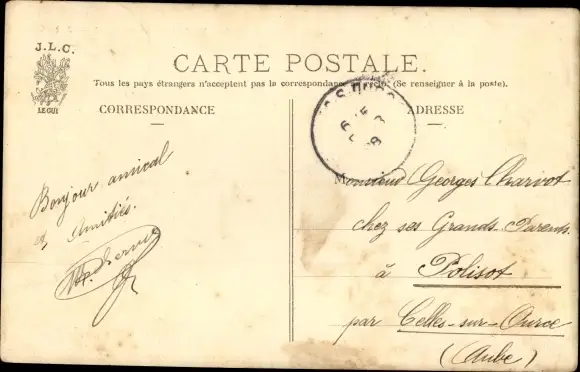 J.L.C.
LEGUI
CARTE POSTALE.
Tous les pays étrangers n'acceptent pas la correspondance (Se renseigner à la poste).
CORRESPONDANCE
ADRESSE
Bonjour amical
et Amitiés.
Monsieur Georges Charvot
chez ses Grands-Parents
à Polisot
par Celles-sur-Ource
(Aube)